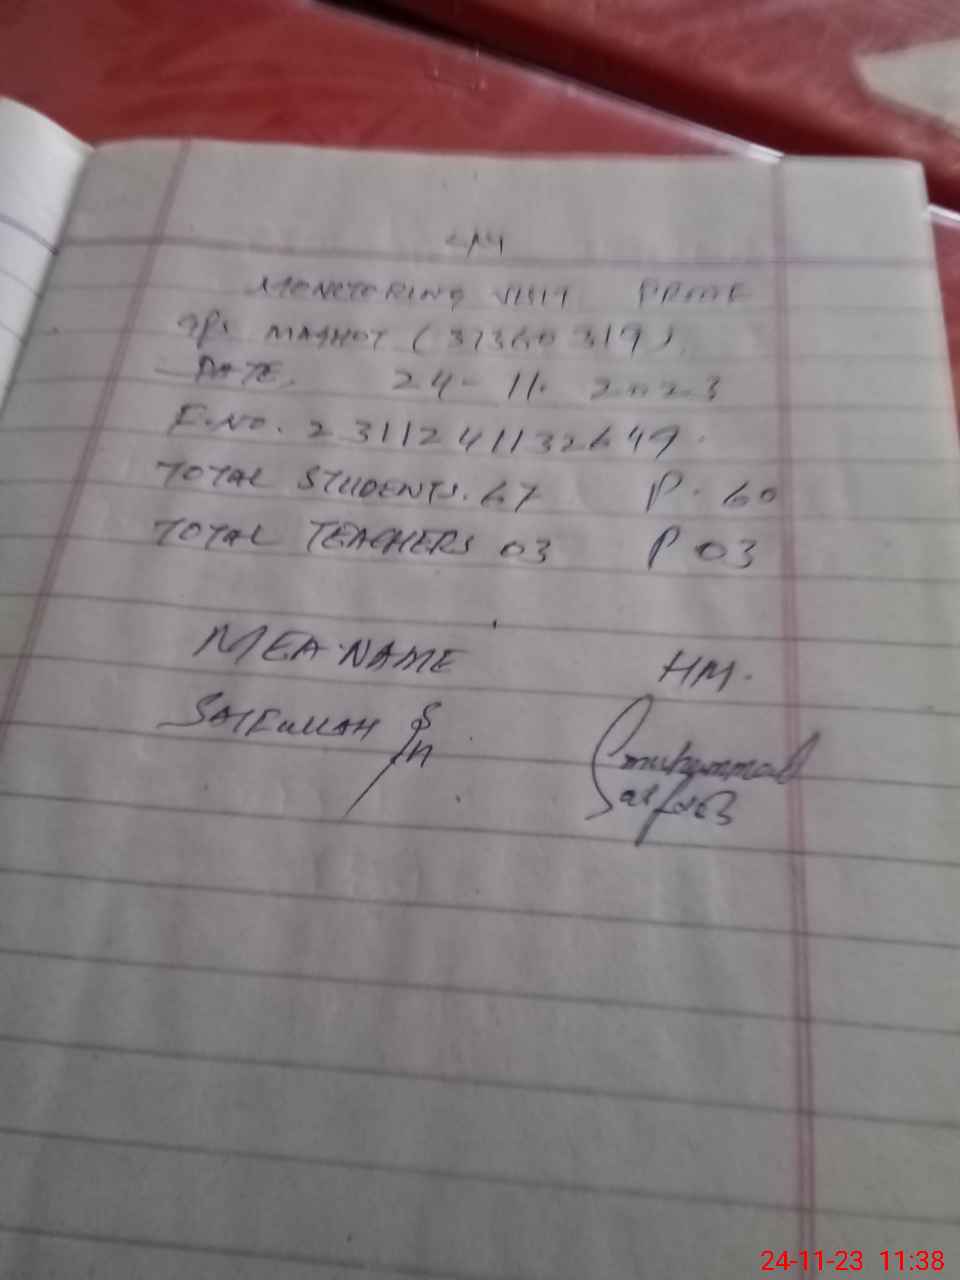 MONITORING VISIT PROOF
GPS MAGHOT (37360319)
DATE. 24-11.2023
E.NO. 2311241132649.
TOTAL STUDENTS. 67 P. 60
TOTAL TEACHERS 03 P 03
MEA NAME HM.
SAIFULLAH
Muhammad
Sarfraz
24-11-23 11:38